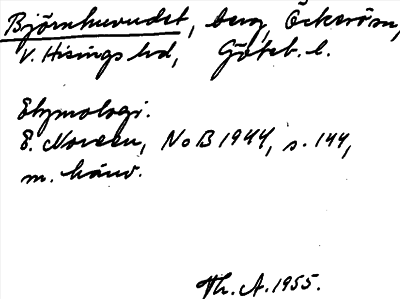 Björnhuvudet, berg, Öckerö sn,
V. Hisings hd, Göteb. l.
Etymologi.
E. Noreen, NoB 1944, s. 144,
m. hänv.
Th. A. 1955.